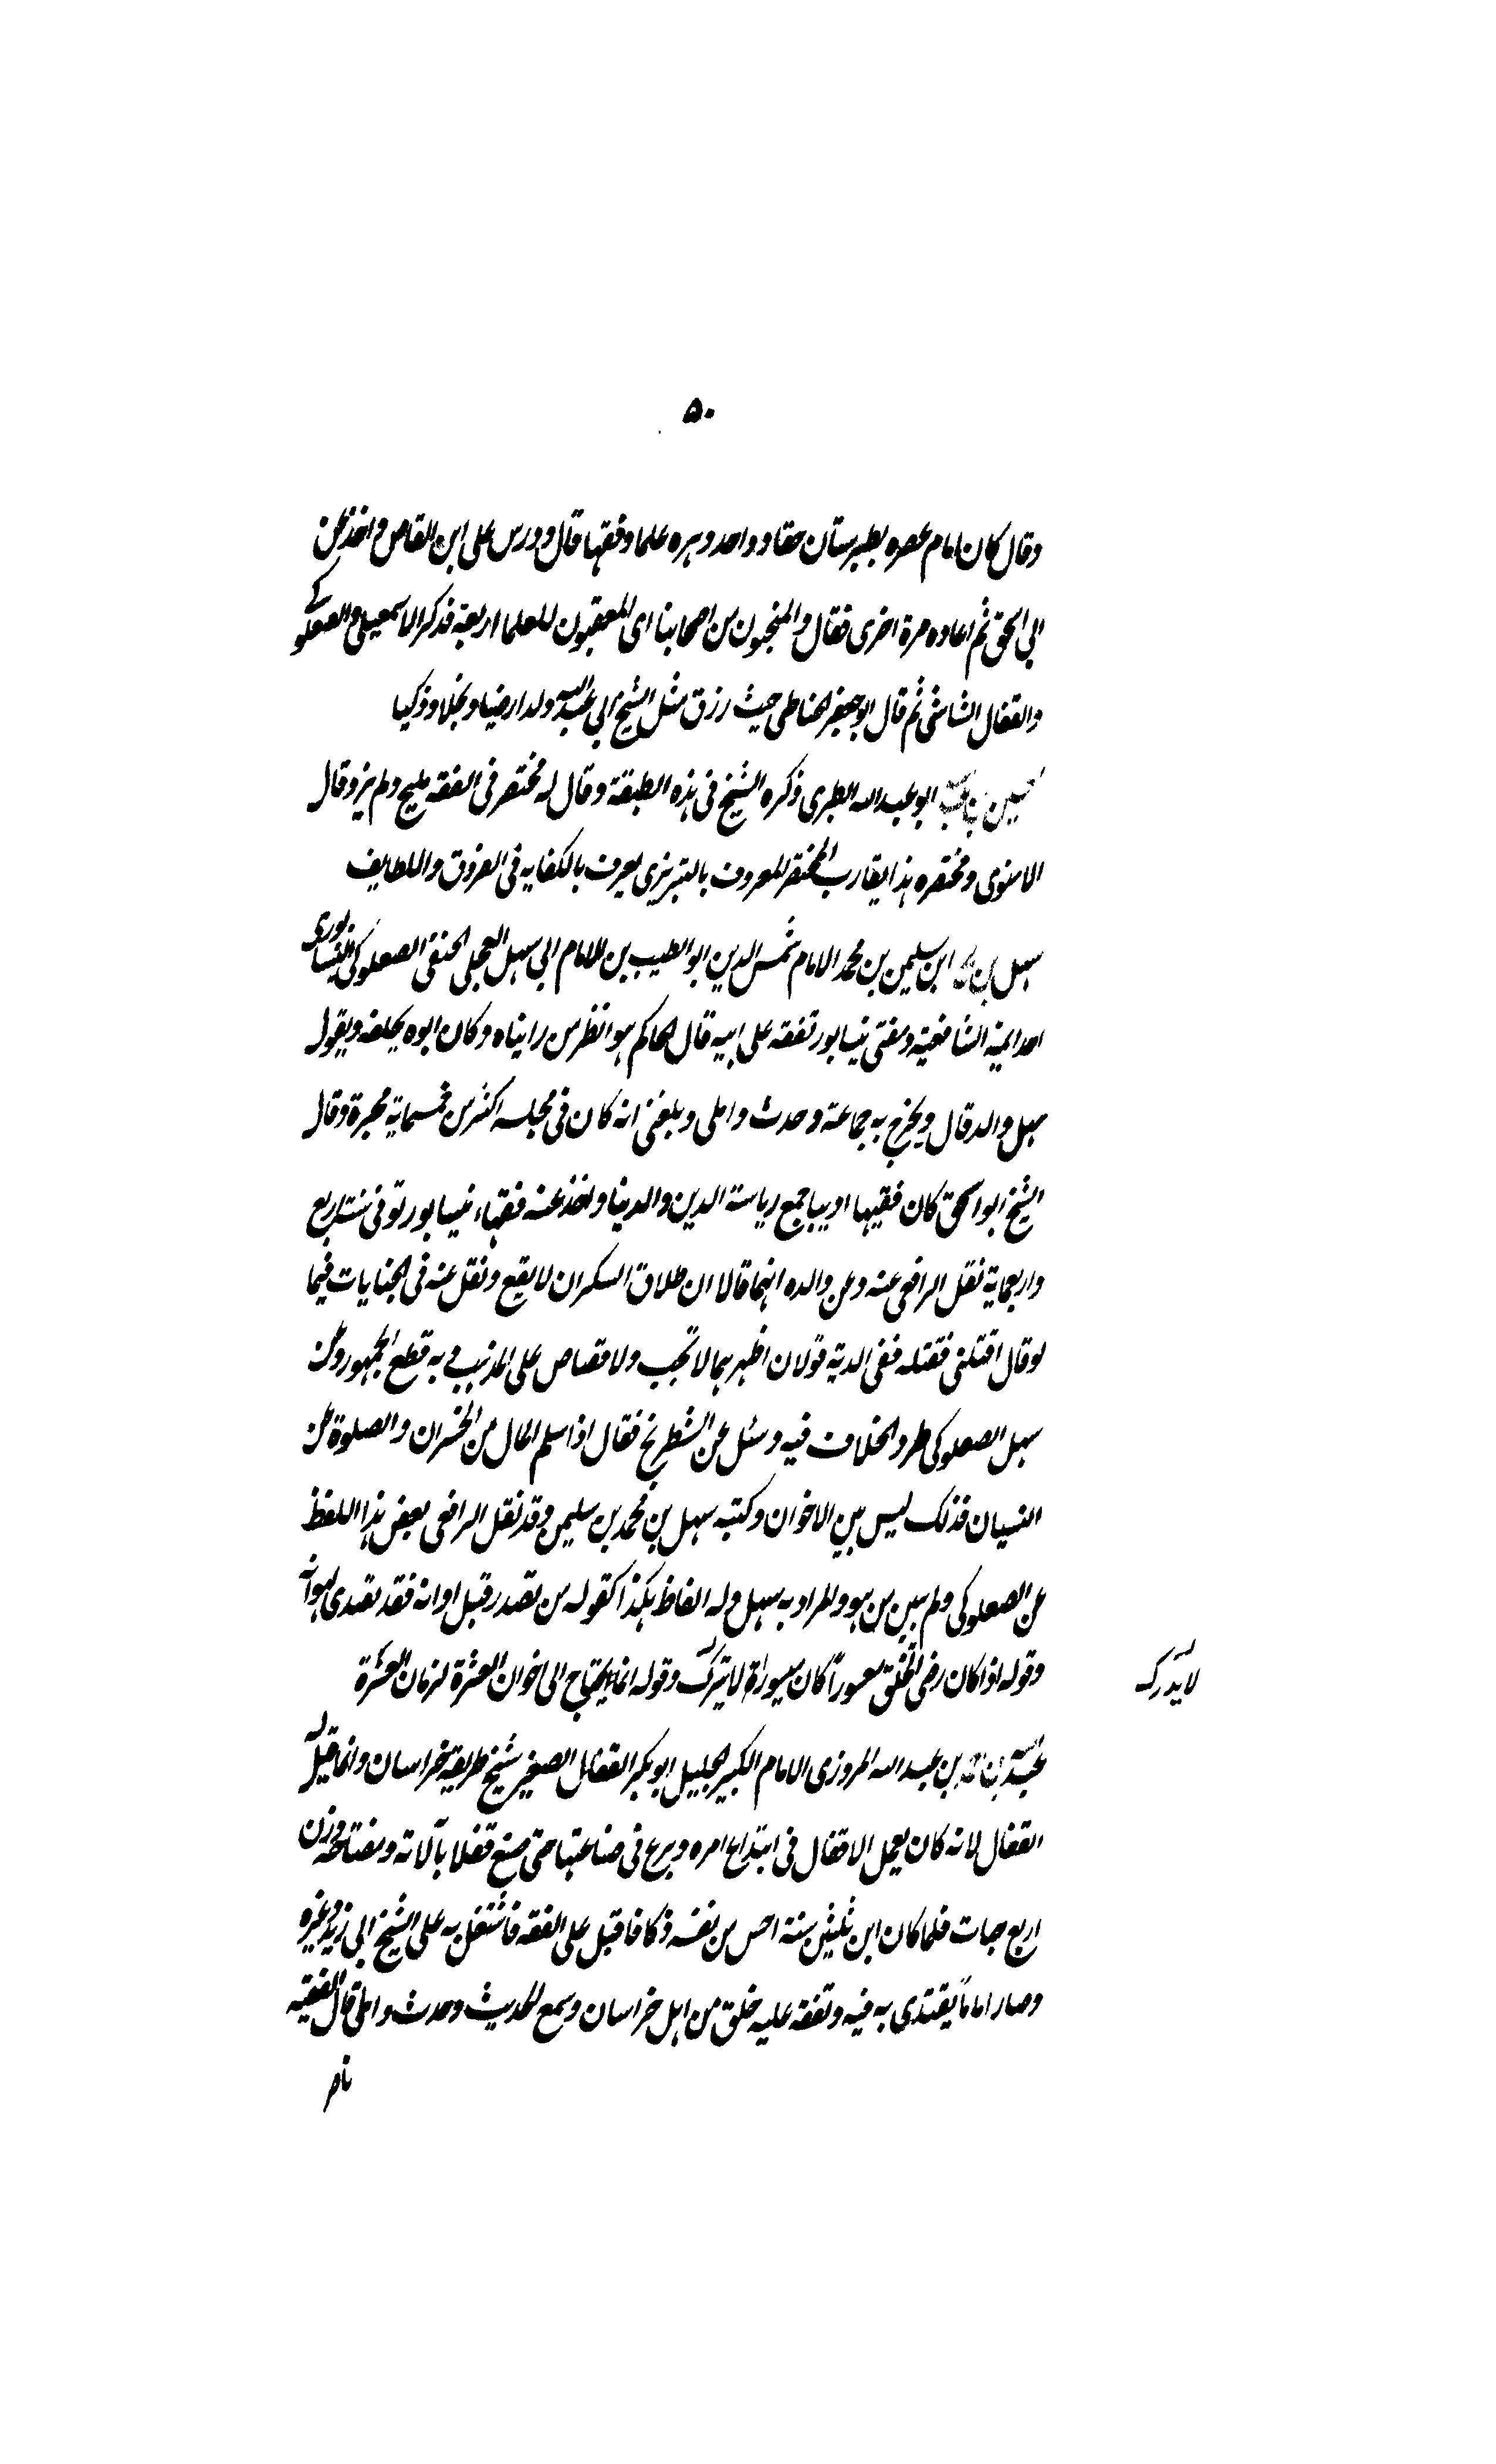 ٥٠
وقال كان امام عصره بطبرستان حقا وواحد دهره علما وفقها قال ودرس على ابن القاص واخذ عن
ابى اسحق ثم اعاده مرة اخرى فقال والمنجبون من اصحابنا اى المعقبون للعلما اربعة فذكر الاسمعيلى والصعلوكى
والقفال الشاشى ثم قال ابو جعفر الحناطى حيث رزق مثل الشيخ ابى عبد الله ولدا رضيا ونجلا وذكيا
ابو عبد الله الطبرى ذكره الشيخ فى هذه الطبقة وقال له مختصر فى الفقه مليح ولم يزد وقال
الاسنوى ومختصره هذا يقارب المختصر المعروف بالتبريزى يعرف بالكفايه فى الفروق واللطايف
سهل بن محمد ابن سليمن بن محمد الامام شمس الدين ابو الطيب بن الامام ابى سهل العجلى الحنفى الصعلوكى النيسابورى
احد ايمة الشافعية ومفتى نيسابور تفقه على ابيه قال الحاكم هو انظر من رايناه وكان ابوه يجله ويقول
سهل والد قال ويخرج به جماعة وحدث واملى وبلغنى انه كان فى مجلسه اكثر من خمسماية محبرة وقال
الشيخ ابو اسحق كان فقيها اديبا جمع رياسة الدين والدنيا واخذ عنه فقهاء نيسابور توفى سنة اربع
واربعماية نقل الرافعى عنه وعن والده انهما قالا ان طلاق السكران لا يقع ونقل عنه فى الجنايات فيما
لو قال اقتلنى فقتله ففى الدية قولان اظهرهما لا تجب ولا قصاص على المذهب وبه قطع الجمهور وعن
سهل الصعلوكى طرد الخلاف فيه وسئل عن الشطرنج فقال اذا سلم المال من الخسران والصلوة عن
النسيان فذلك ليس بين الاخوان وكتبه سهل بن محمد بن سليمن وقد نقل الرافعى بعض هذا اللفظ
عن الصعلوكى ولم يبين من هو والمراد به سهل وله الفاظ هكذا كقوله من تصدر قبل اوانه فقد تصدى لهوانه
وقوله اذا كان رضى الخلق معسوراً كان ميسوراه لا يترك وقوله انما يحتاج الى اخوان العشرة لزمان العسرة
لا يدرك
عبد الله بن احمد بن عبد الله المروزى الامام الكبير الجليل ابو بكر القفال الصغير شيخ طريقة خراسان وانما قيل له
القفال لانه كان يعمل الاقفال فى ابتداء امره وبرع فى صناعتها حتى صنع قفلا بآلاته ومفتاحه وزن
اربع حبات فلما كان ابن ثلثين سنة احس من نفسه ذكا فاقبل على الفقه فاشتغل به على الشيخ ابى زيد وغيره
وصار اماماً يقتدى به فيه وتفقه عليه خلق من اهل خراسان وسمع الحديث وحدث واملى قال الفقيه
ناصر